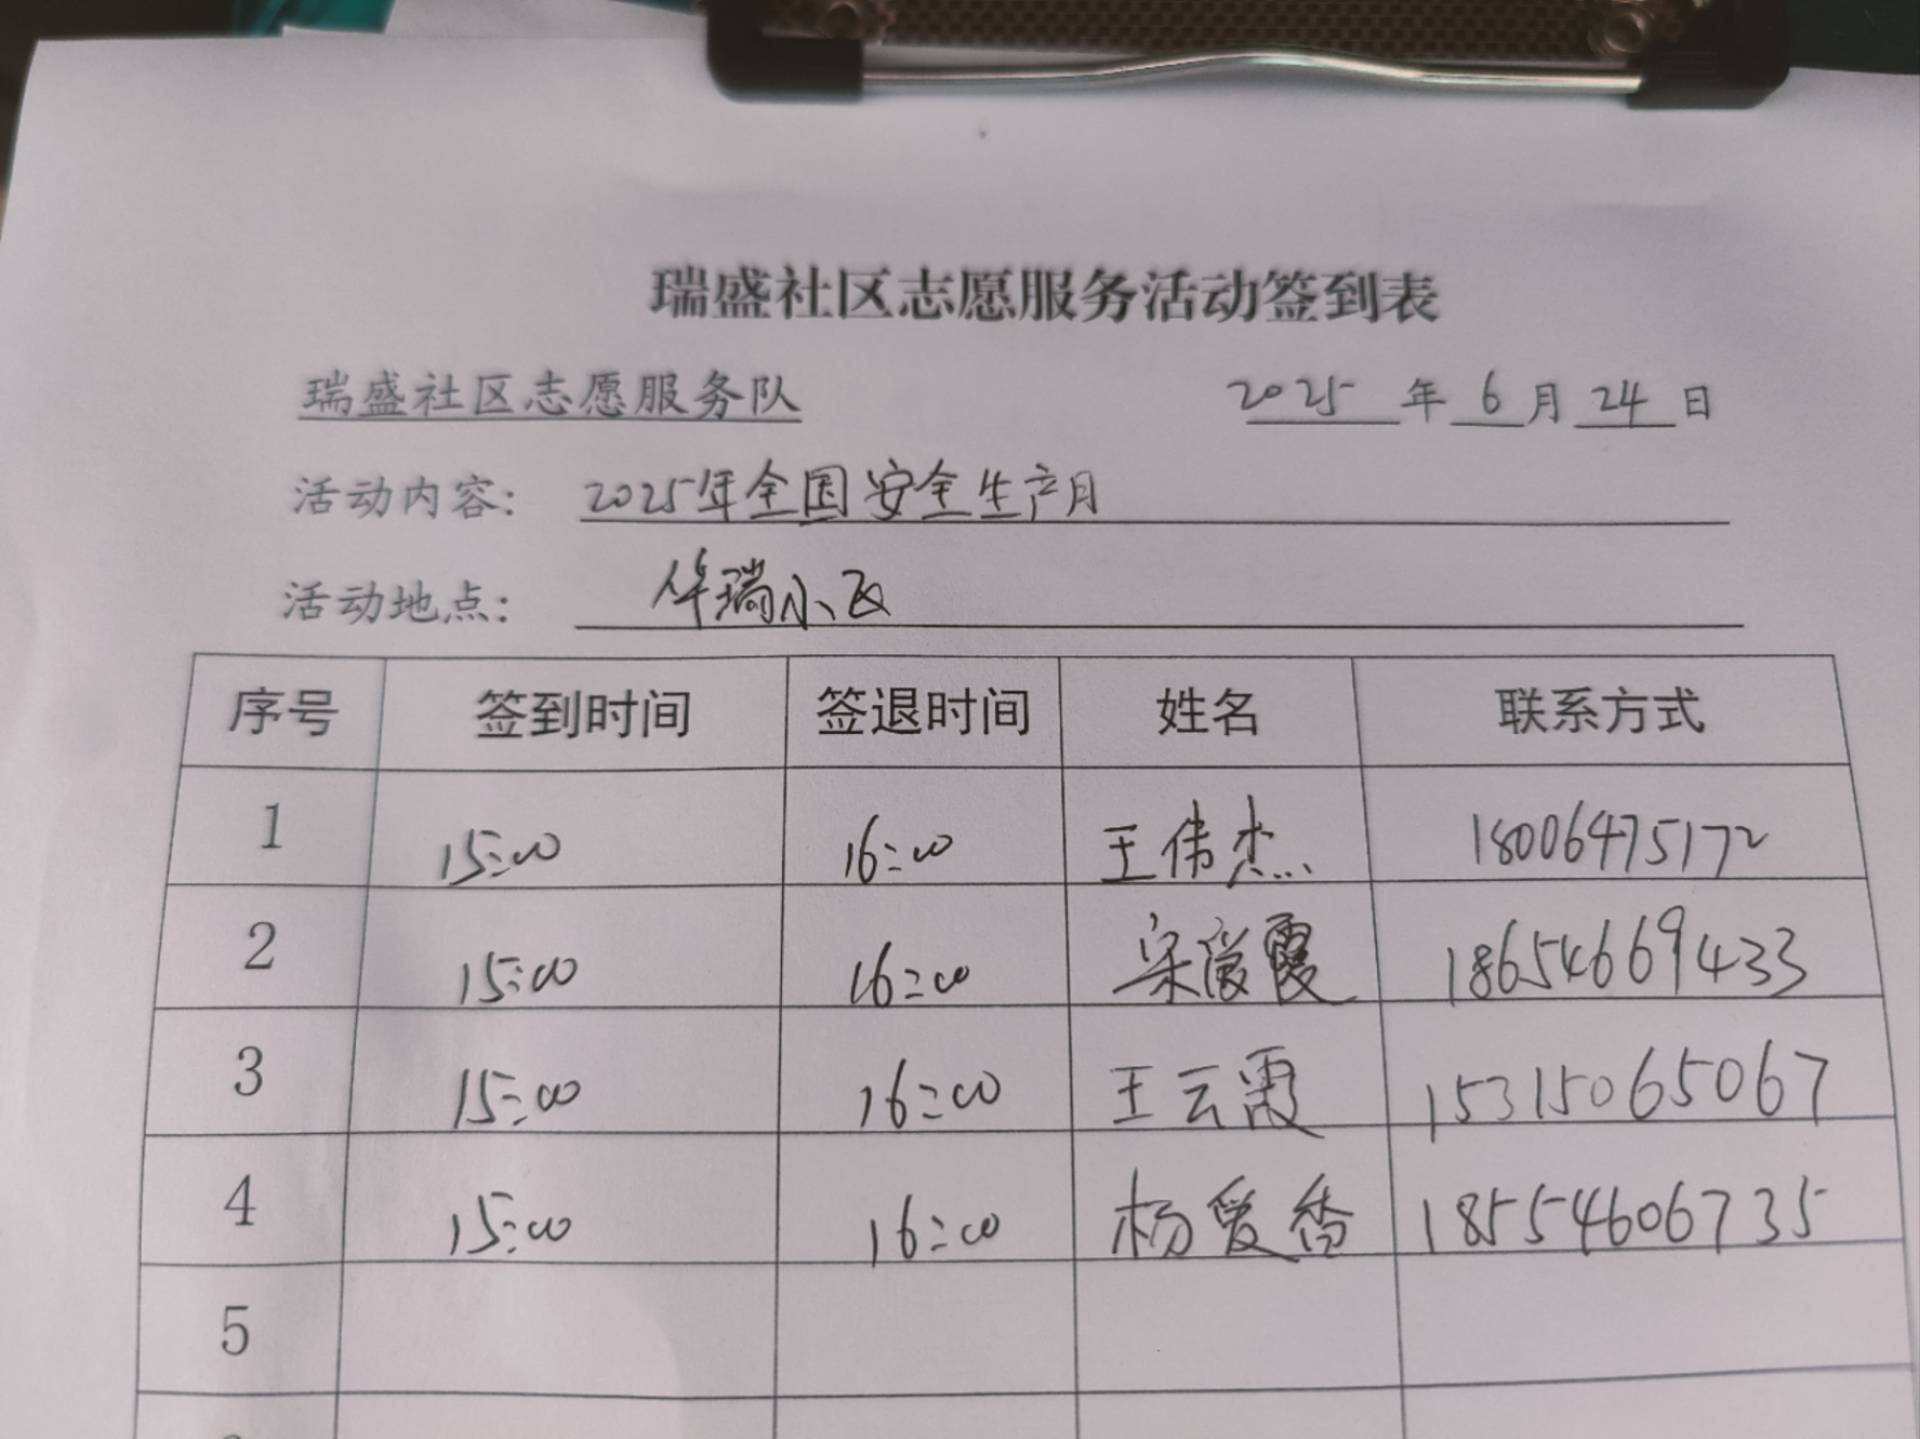 瑞盛社区志愿服务活动签到表
瑞盛社区志愿服务队 2025 年 6 月 24 日
活动内容: 2025年全国安全生产月
活动地点: 华瑞小区
序号 签到时间 签退时间 姓名 联系方式
1 15:00 16:00 王伟杰 18006475172
2 15:00 16:00 宋 霞 18654669433
3 15:00 16:00 王云霞 15315065067
4 15:00 16:00 杨爱香 18554606735
5